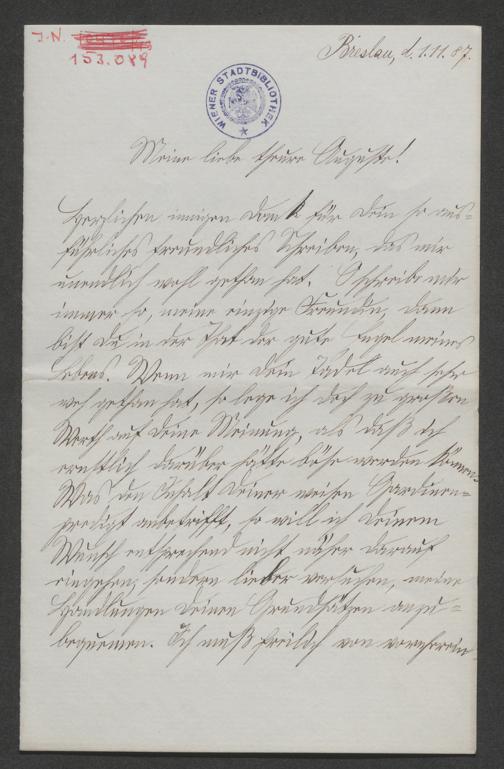 J.N. 153.089
Breslau, d. 1.11.87.
WIENER STADTBIBLIOTHEK
Meine liebe theure Auguste!
Herzlichen innigen Dank für Dein so aus=
führliches freundliches Schreiben, das mir
unendlich wohl gethan hat. O schreibe mir
immer so, meine einzige Freundin, dann
bist Du in der That der gute Engel meines
Lebens. Wenn mir Dein Tadel auch sehr
weh gethan hat, so lege ich doch zu großen
Werth auf Deine Meinung, als daß ich
ernstlich darüber hätte böse werden können.
Was den Inhalt Deiner weisen Gardinen=
predigt anbetrifft, so will ich Deinem
Wunsch entsprechend nicht näher darauf
eingehen, sondern lieber versuchen, meine
Handlungen Deinen Grundsätzen anzu=
bequemen. Ich muß freilich von vornherein